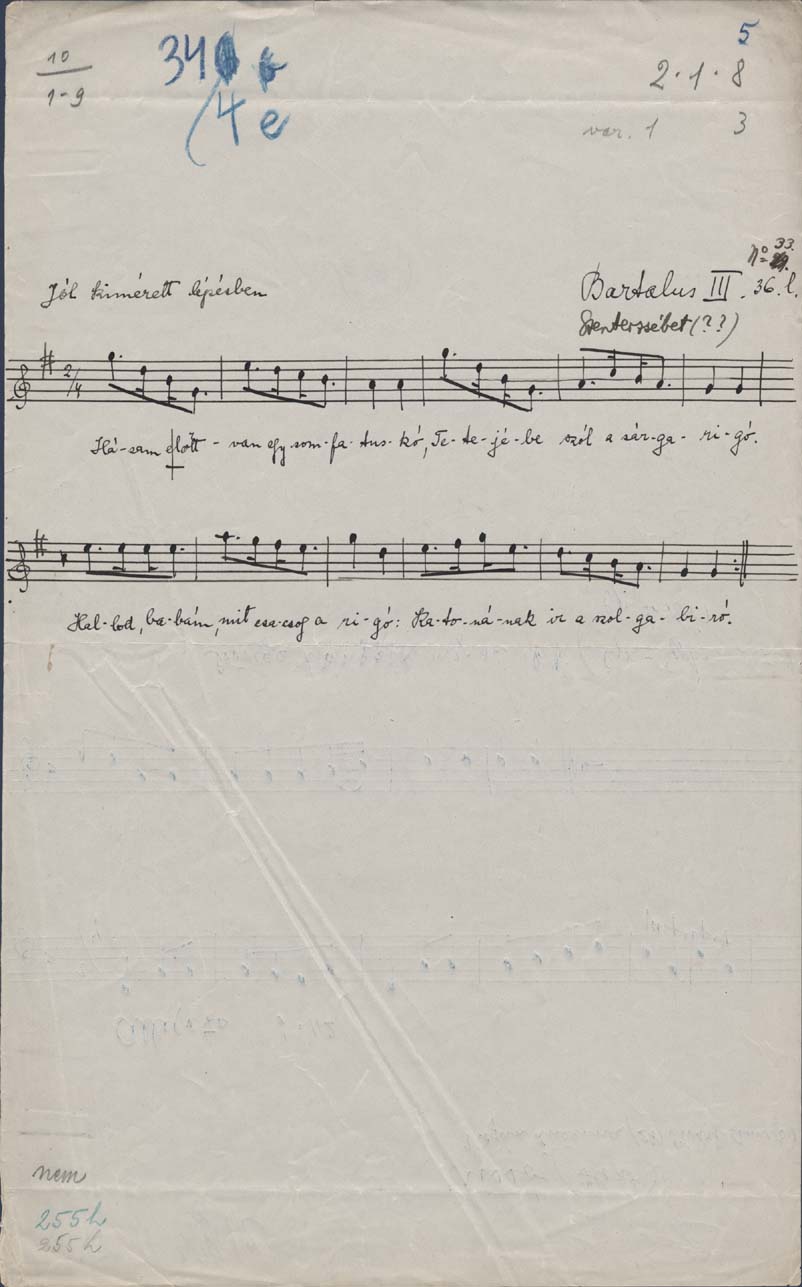 10
1-9
34
4 e
5
2·1·8
var. 1 3
No 33.
Jól kimérett lépésben
Bartalus III. 36. l.
Szenterzsébet (??)
2/4
Há-zam előtt - van egy som-fa-tus-kó, Te-te-jé-be szól a sár-ga-ri-gó.
Hal-lod, ba-bám, mit csa-csog a ri-gó: Ka-to-ná-nak ir a szol-ga-bi-ró.
nem
255h
255h